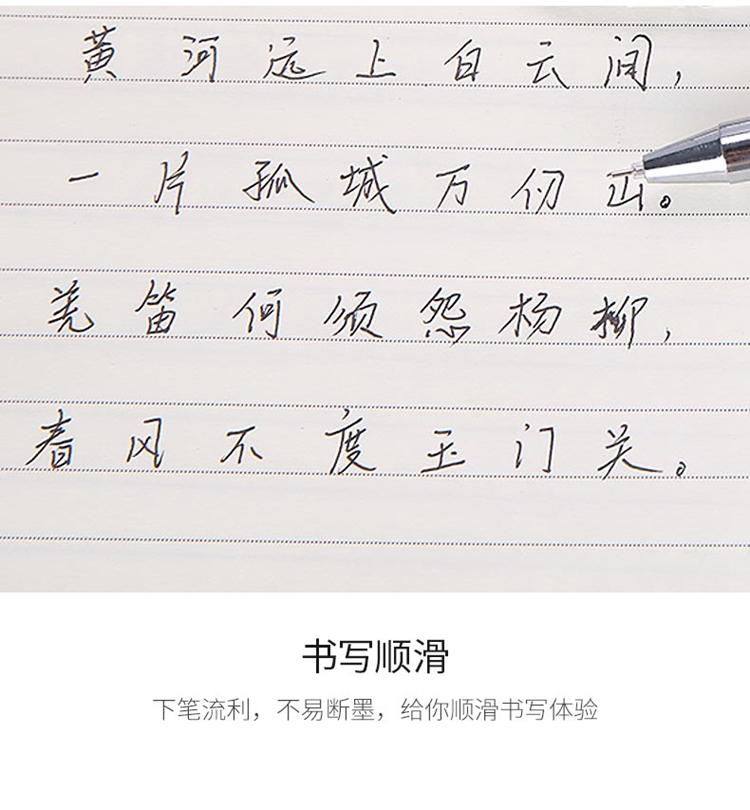 黄河远上白云间，
一片孤城万仞山。
羌笛何须怨杨柳，
春风不度玉门关。
书写顺滑
下笔流利，不易断墨，给你顺滑书写体验